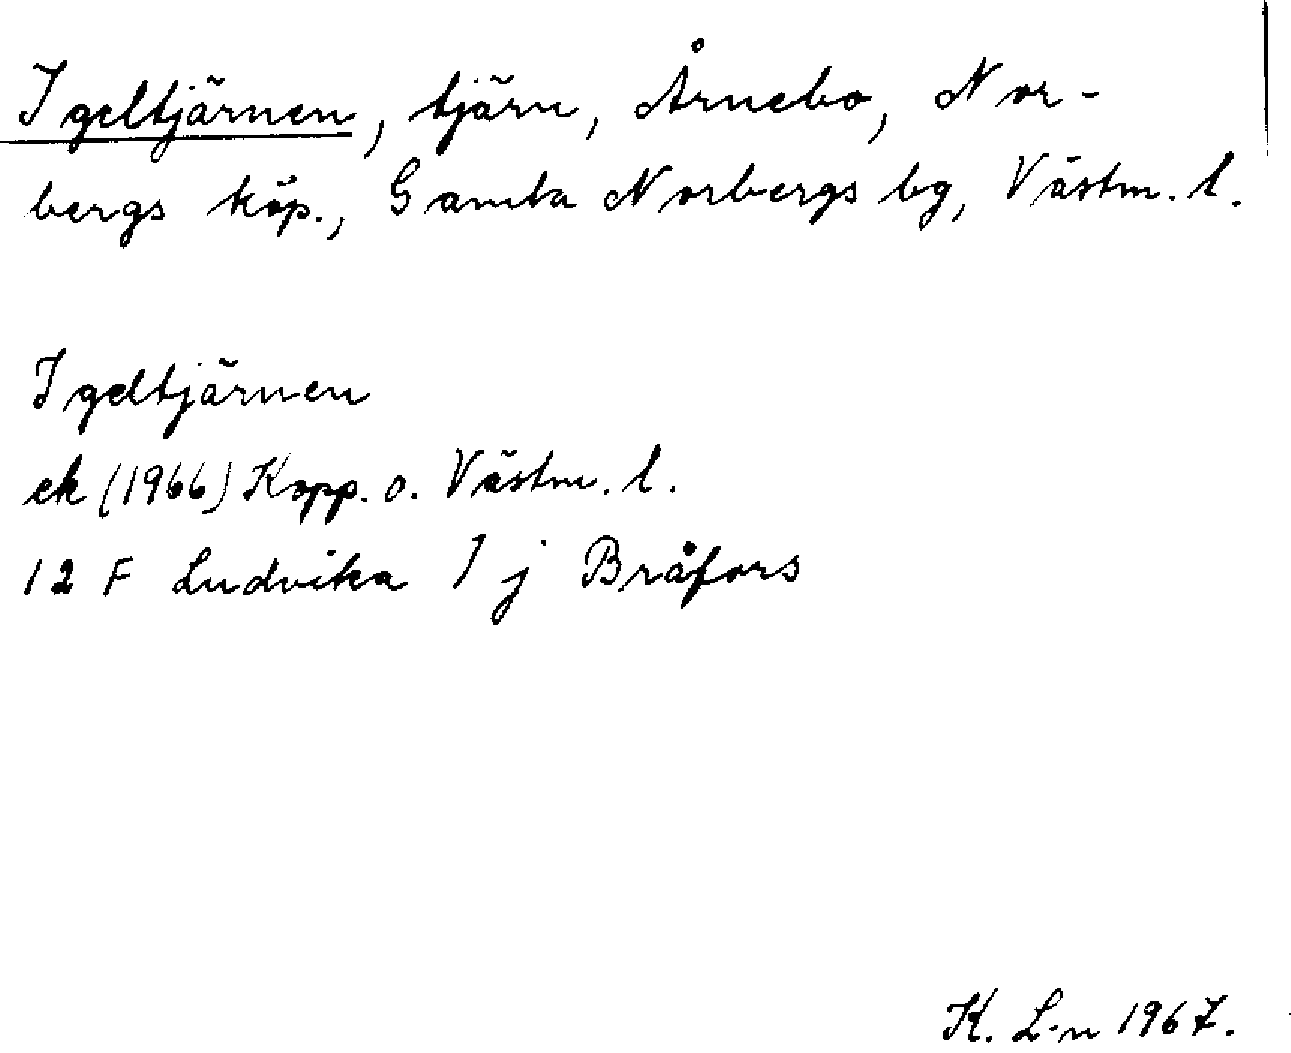 Igeltjärnen, tjärn, Årnebo, Nor-
bergs köp., Gamla Norbergs bg, Västm. l.
Igeltjärnen
ek (1966) Kopp. o. Västm. l.
12 F Ludvika 1 j Bråfors
K. L-n 1967.